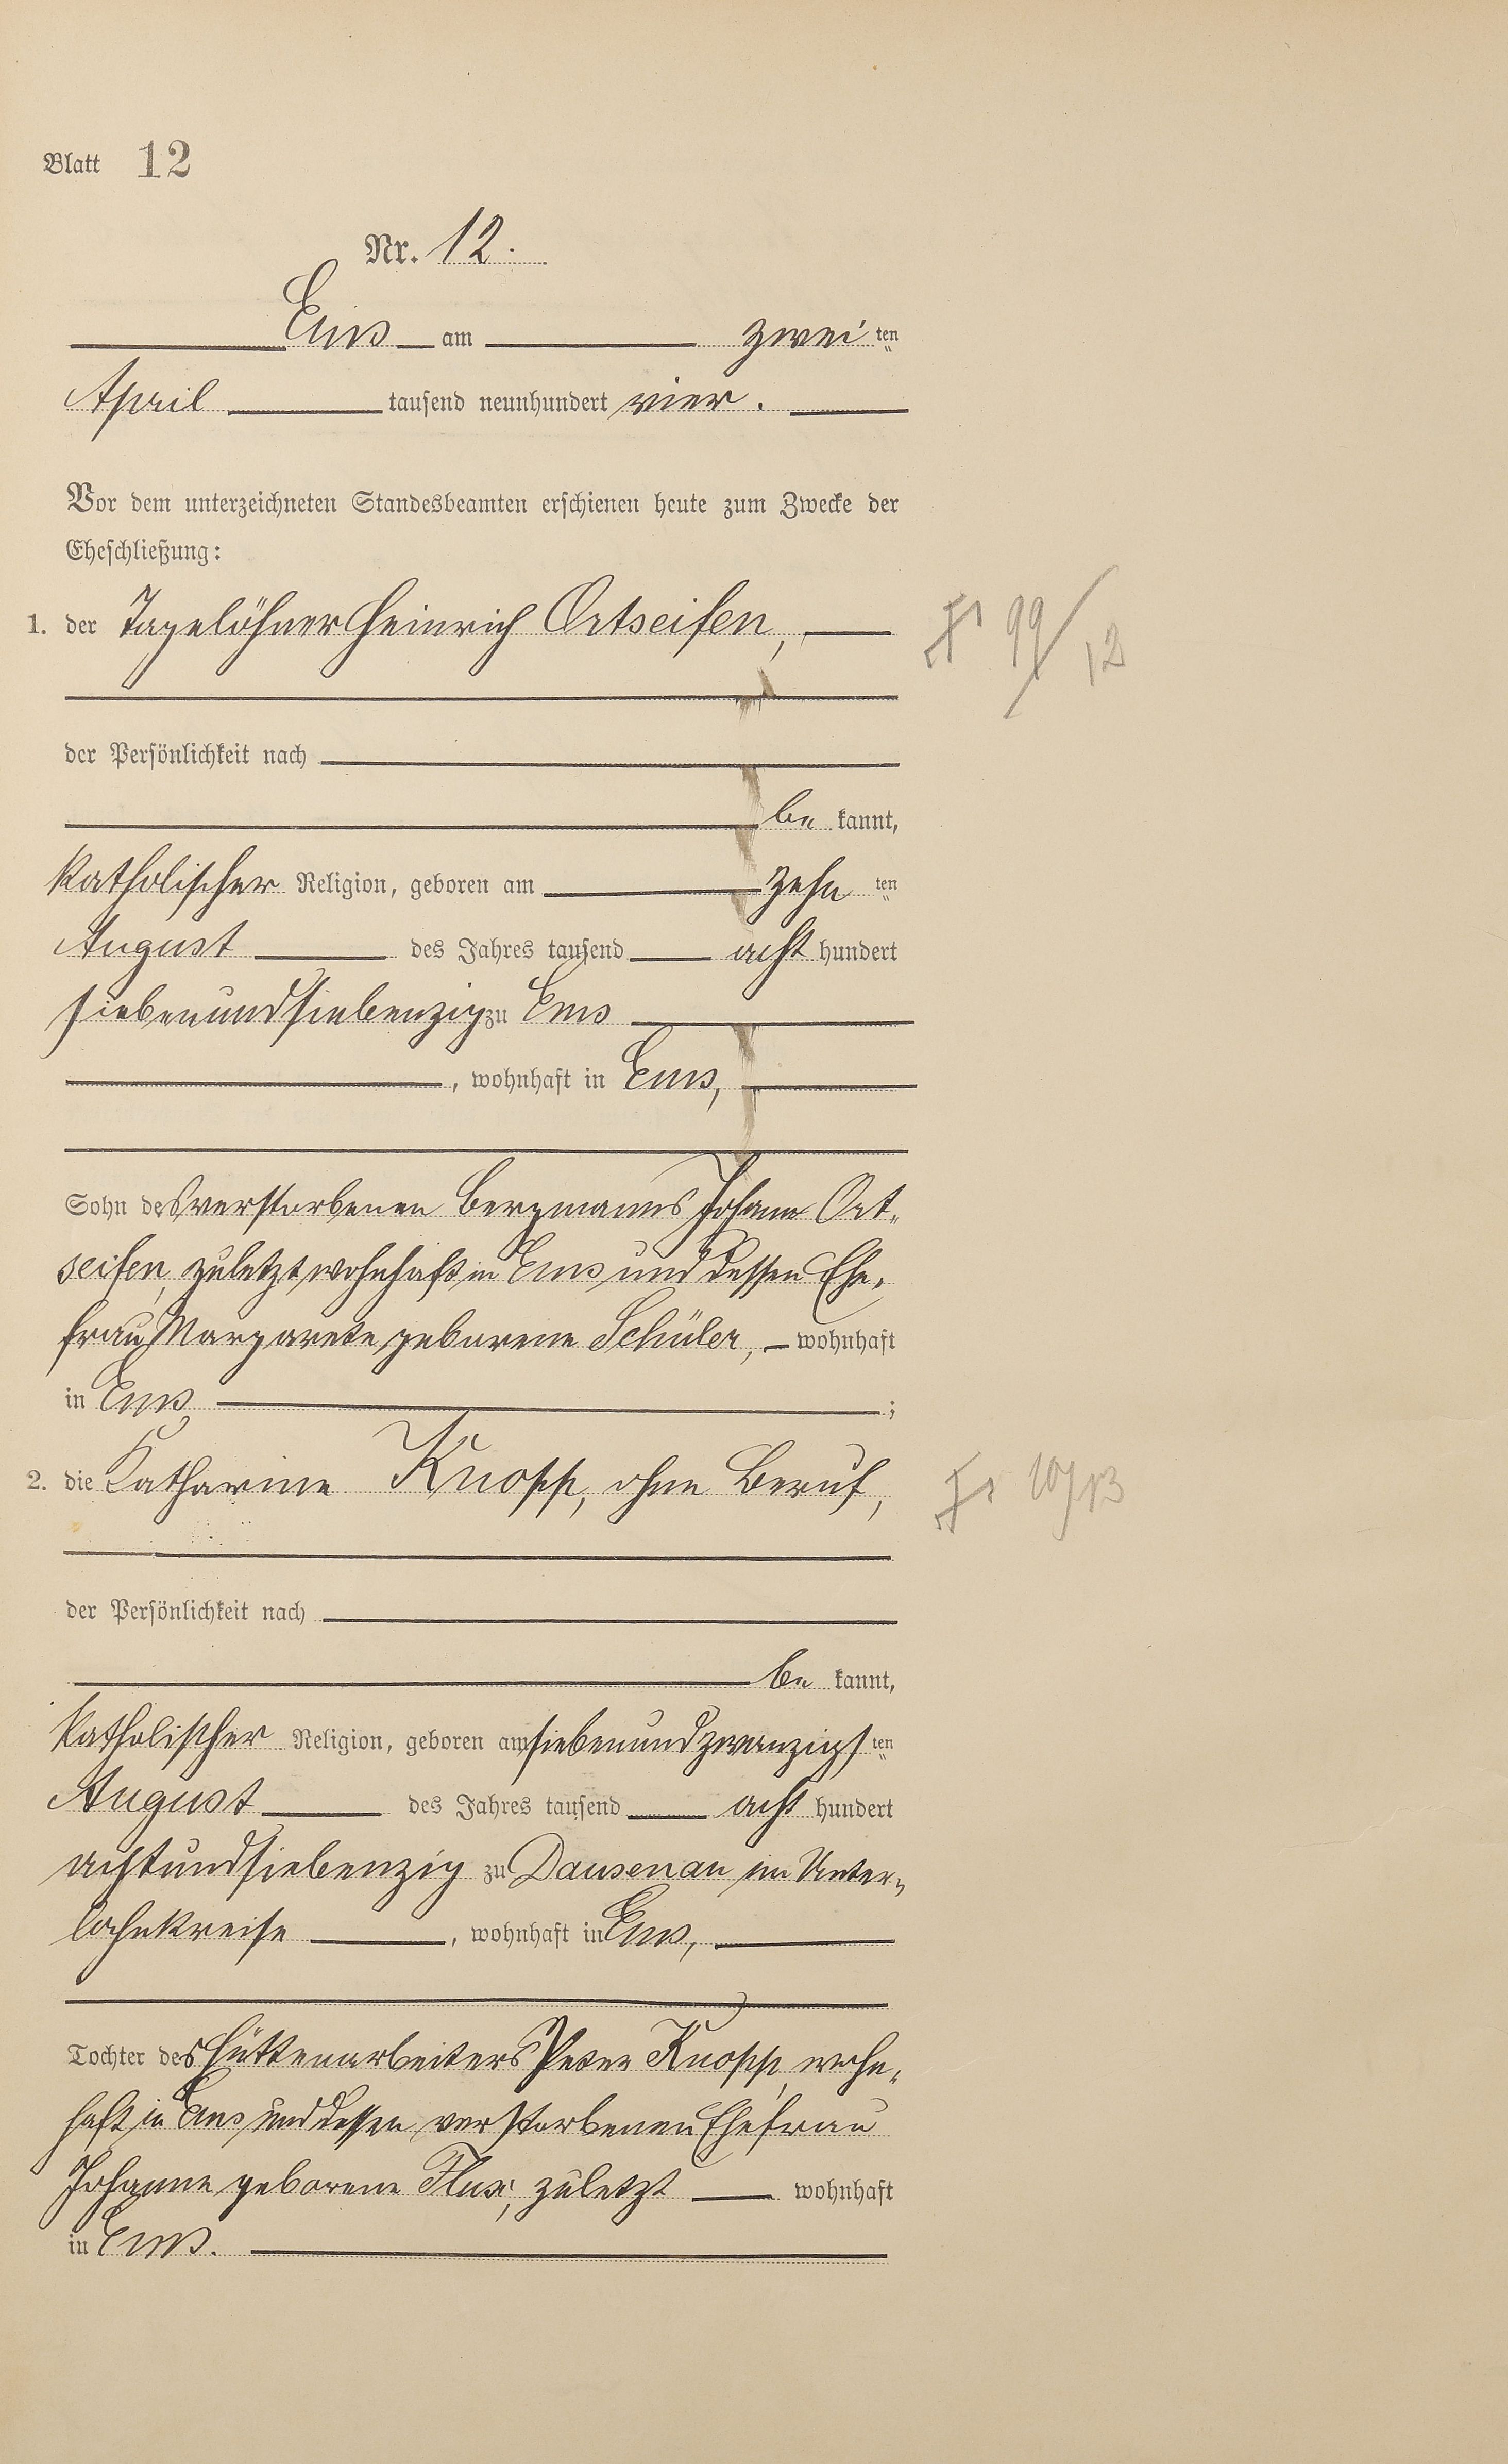 Blatt 12
Nr. 12.
Ems am zweiten
April tausend neunhundert vier.
Vor dem unterzeichneten Standesbeamten erschienen heute zum Zwecke der
Eheschließung:
1. der Tagelöhner Heinrich Ortseifen,
99/12
der Persönlichkeit nach
be kannt,
katholischer Religion, geboren am zehn ten
August des Jahres tausend acht hundert
siebenundsiebenzig zu Ems
, wohnhaft in Ems,
Sohn des verstorbenen Bergmanns Johann Ort„
seifen, zuletzt wohnhaft in Ems und dessen Ehe„
frau Margarete geborene Schüler, wohnhaft
in Ems ;
2. die Katharine Knopp, ohne Beruf,
der Persönlichkeit nach
be kannt,
katholischer Religion, geboren am siebenundzwanzigsten
August des Jahres tausend acht hundert
achtundsiebenzig zu Dausenau im Unter„
lahnkreise , wohnhaft in Ems,
Tochter des Hüttenarbeiters Peter Knopp, wohn„
haft in Ems und dessen verstorbenen Ehefrau
Johanne geborene Flux, zuletzt wohnhaft
in Ems.